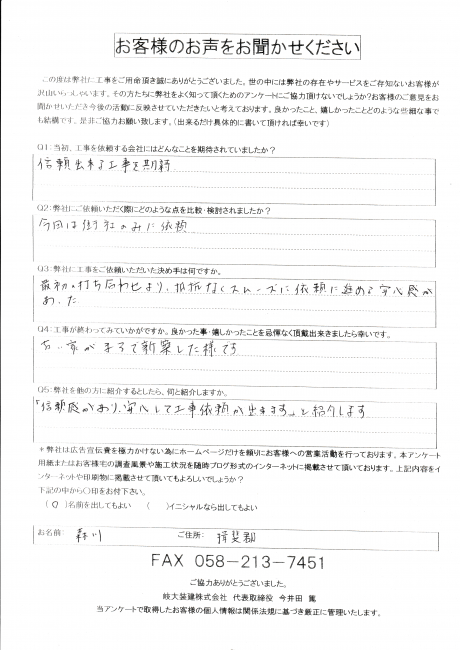 お客様のお声をお聞かせください
この度は弊社に工事をご用命頂き誠にありがとうございました。世の中には弊社の存在やサービスをご存知ないお客様が
沢山いらっしゃいます。その方たちに弊社をよく知って頂くためのアンケートにご協力頂けないでしょうか?お客様のご意見をお
聞かせいただき今後の活動に反映させていただきたいと考えております。良かったこと、嬉しかったことどのような些細な事で
も結構です。是非ご協力お願い致します。(出来るだけ具体的に書いて頂ければ幸いです)
Q1:当初、工事を依頼する会社にはどんなことを期待されていましたか?
信頼出来る工事を期待
Q2:弊社にご依頼いただく際にどのような点を比較・検討されましたか?
今回は御社のみに依頼
Q3:弊社に工事をご依頼いただいた決め手は何ですか。
最初の打ち合わせより、抵抗なくスムーズに依頼に進める安心感が
あった
Q4:工事が終わってみていかがですか。良かった事・嬉しかったことを忌憚なく頂戴出来きましたら幸いです。
古い家がまるで新築した様です
Q5:弊社を他の方に紹介するとしたら、何と紹介しますか。
「信頼感があり、安心して工事依頼が出来ます」と紹介します
*弊社は広告宣伝費を極力かけない為にホームページだけを頼りにお客様への営業活動を行っております。本アンケート
用紙またはお客様宅の調査風景や施工状況を随時ブログ形式のインターネットに掲載させて頂いております。上記内容をイン
ターネットや印刷物に掲載させて頂いてもよろしいでしょうか?
下記の中から○印をお付下さい。
(○)名前を出してもよい ( )イニシャルなら出してもよい
お名前: 森川 ご住所: 揖斐郡
FAX 058-213-7451
ご協力ありがとうございました。
岐太装建株式会社 代表取締役 今井田 篤
当アンケートで取得したお客様の個人情報は関係法規に基づき厳正に管理いたします。